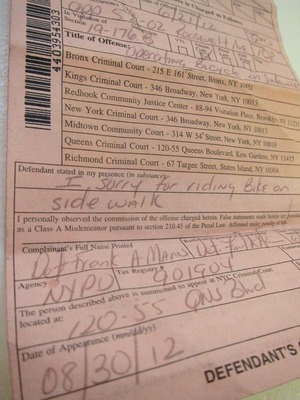 In Violation of
Section
19-176 B
Title of Offense:
Operating Bicycle on Sidewalk
4403954303
Bronx Criminal Court - 215 E 161 Street, Bronx, NY 10451
Kings Criminal Court - 346 Broadway, New York, NY 10013
Redhook Community Justice Center - 88-94 Visitation Place, Brooklyn, NY
New York Criminal Court - 346 Broadway, New York, NY 10013
Midtown Community Court - 314 W 54 Street, New York, NY 10019
Queens Criminal Court - 120-55 Queens Boulevard, Kew Gardens, NY 11415
Richmond Criminal Court - 67 Targee Street, Staten Island, NY 10304
Defendant stated in my presence (in substance):
I, sorry for riding Bike on
side walk
I personally observed the commission of the offense charged herein. False statements made herein are
as a Class A Misdemeanor pursuant to section 210.45 of the Penal Law. Affirmed under penalty of
Complainant's Full Name Printed
Det Frank A Mann
Agency
NYPD
Tax Registry #
901904
The person described above is summoned to appear in NYC Criminal Court
located at:
120-55 QNS Blvd
Date of Appearance (mm/dd/yy)
08/30/12
DEFENDANT'S